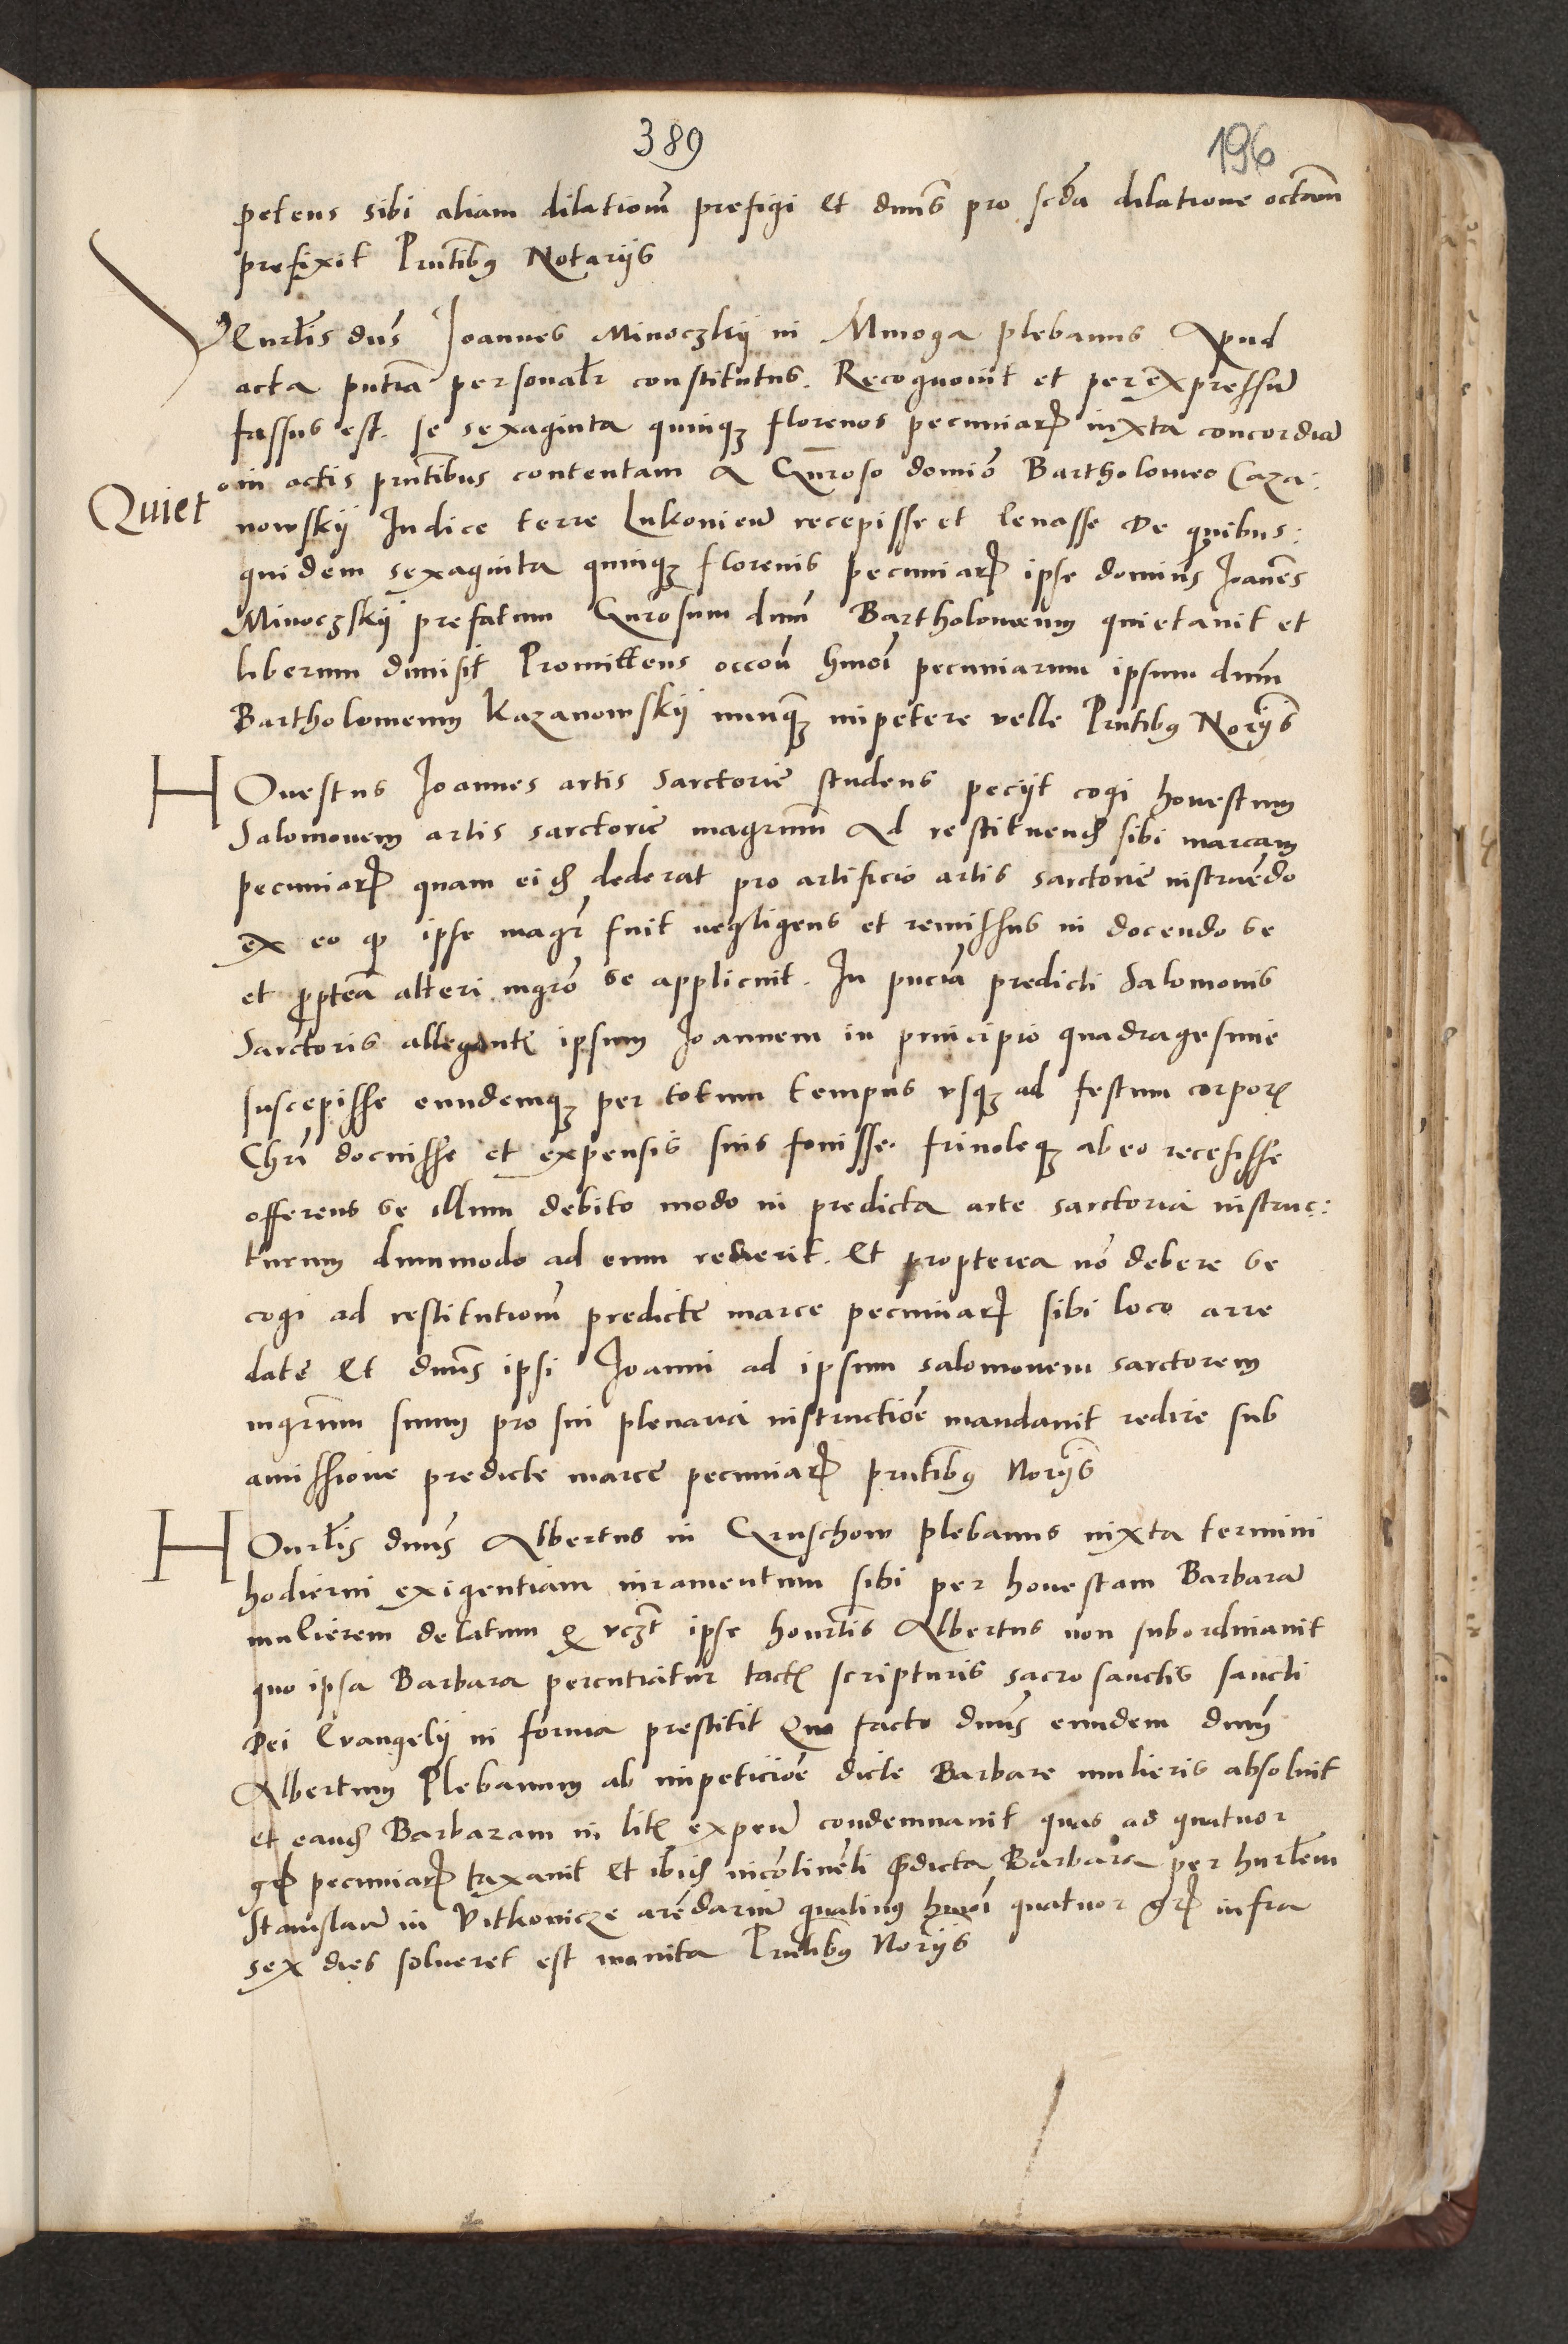 389
196
petens sibi aliam dilationem̄ prefigi Et dnūs pro scd̄a dilatione octam̄
prefixit Pntib̄9 Notarijs
Venrl̄is dnūs Joannes Minoczkij in Mnoga plebanus Apud
acta pntīa personalr̄ constitutus. Recognouit et per expressum̄
fassus est. se sexaginta quinqꝫ florenos pecuniarꝝ iuxta concordiā
in actis pn̄tibus contentam a Gn̄roso domīo Bartholomeo Caza:
Quiet
nowskij Judice terre Lukonien̄ recepisse et leuasse De quibus:
quidem sexaginta quinqꝫ florenis pecuniarꝝ ipse domin̄s Joan̄es
Minoczskij prefatum Gn̄rosum dnm̄ Bartholomeum quietauit et
liberum dimisit Promittens occon̄e hm̄oi pecuniarum ipsum dnm̄
Bartholomeum Kazanowskij nunqꝫ impetere velle Pn̄tib9 Norijs̄
HOnestus Joannes artis sarctorie studens peciit cogi honestum
Salomonem artis sarctorie magrum̄ ad restituend̄ sibi marcam
pecuniarꝝ quam eid̄ dederat pro artificio artis sarctorie instruēdo
ex eo ꝙ ipse magr̄ fuit negligens et remissus in docendo se
et ꝓpteā alteri mgrō se applicuit. In pn̄cia predicti Salomonis
Sarctoris allegantꝭ ipsum Joannem in principio quadragesime
suscepisse eundemqꝫ per totum tempus vsqꝫ ad festum corporꝭ
Chrī docuisse et expensis suis fouisse. friuoleqꝫ ab eo recessisse
offerens se illum debito modo in predicta arte sarctoria instruc:
turum dummodo ad eum redierit. Et propterea nō debere se
cogi ad restitutionem̄ predicte marce pecuniarꝝ sibi loco arre
date Et dnūs ipsi Joanni ad ipsum salomonem sarctorem
mgrum̄ suum pro sui plenaria instructiōe mandauit redire sub
amissione predicte marce pecuniarꝝ pn̄tib9 Norijs̄
HOnrl̄is dnūs Albertus in Gruschow plebanus iuxta termini
hodierni exigentiam iuramentum sibi per honestam Barbaram̄
mulierem delatum ꝙ vꝫt ipse honrl̄is Albertus non subordinauit
quo ipsa Barbara percutiatur tactꝭ scripturis sacrosanctis sancti
Dei Euangelij in forma prestitit Quo facto dnūs eundem dnm̄
Albertum Plebanum ab impeticiōe dicte Barbare mulieris absoluit
et eand̄ Barbaram in litꝭ expen̄ condemnauit quas ad quatuor
grꝭ pecuniarꝝ taxauit Et ibid̄ incōtinēti p̄dicta Barbara per hnrl̄em
Stanislaū in Vitkonicze arēdariū quatinus hm̄oi quatuor grꝭ infra
sex dies solueret est monita Pn̄tib9 Norijs